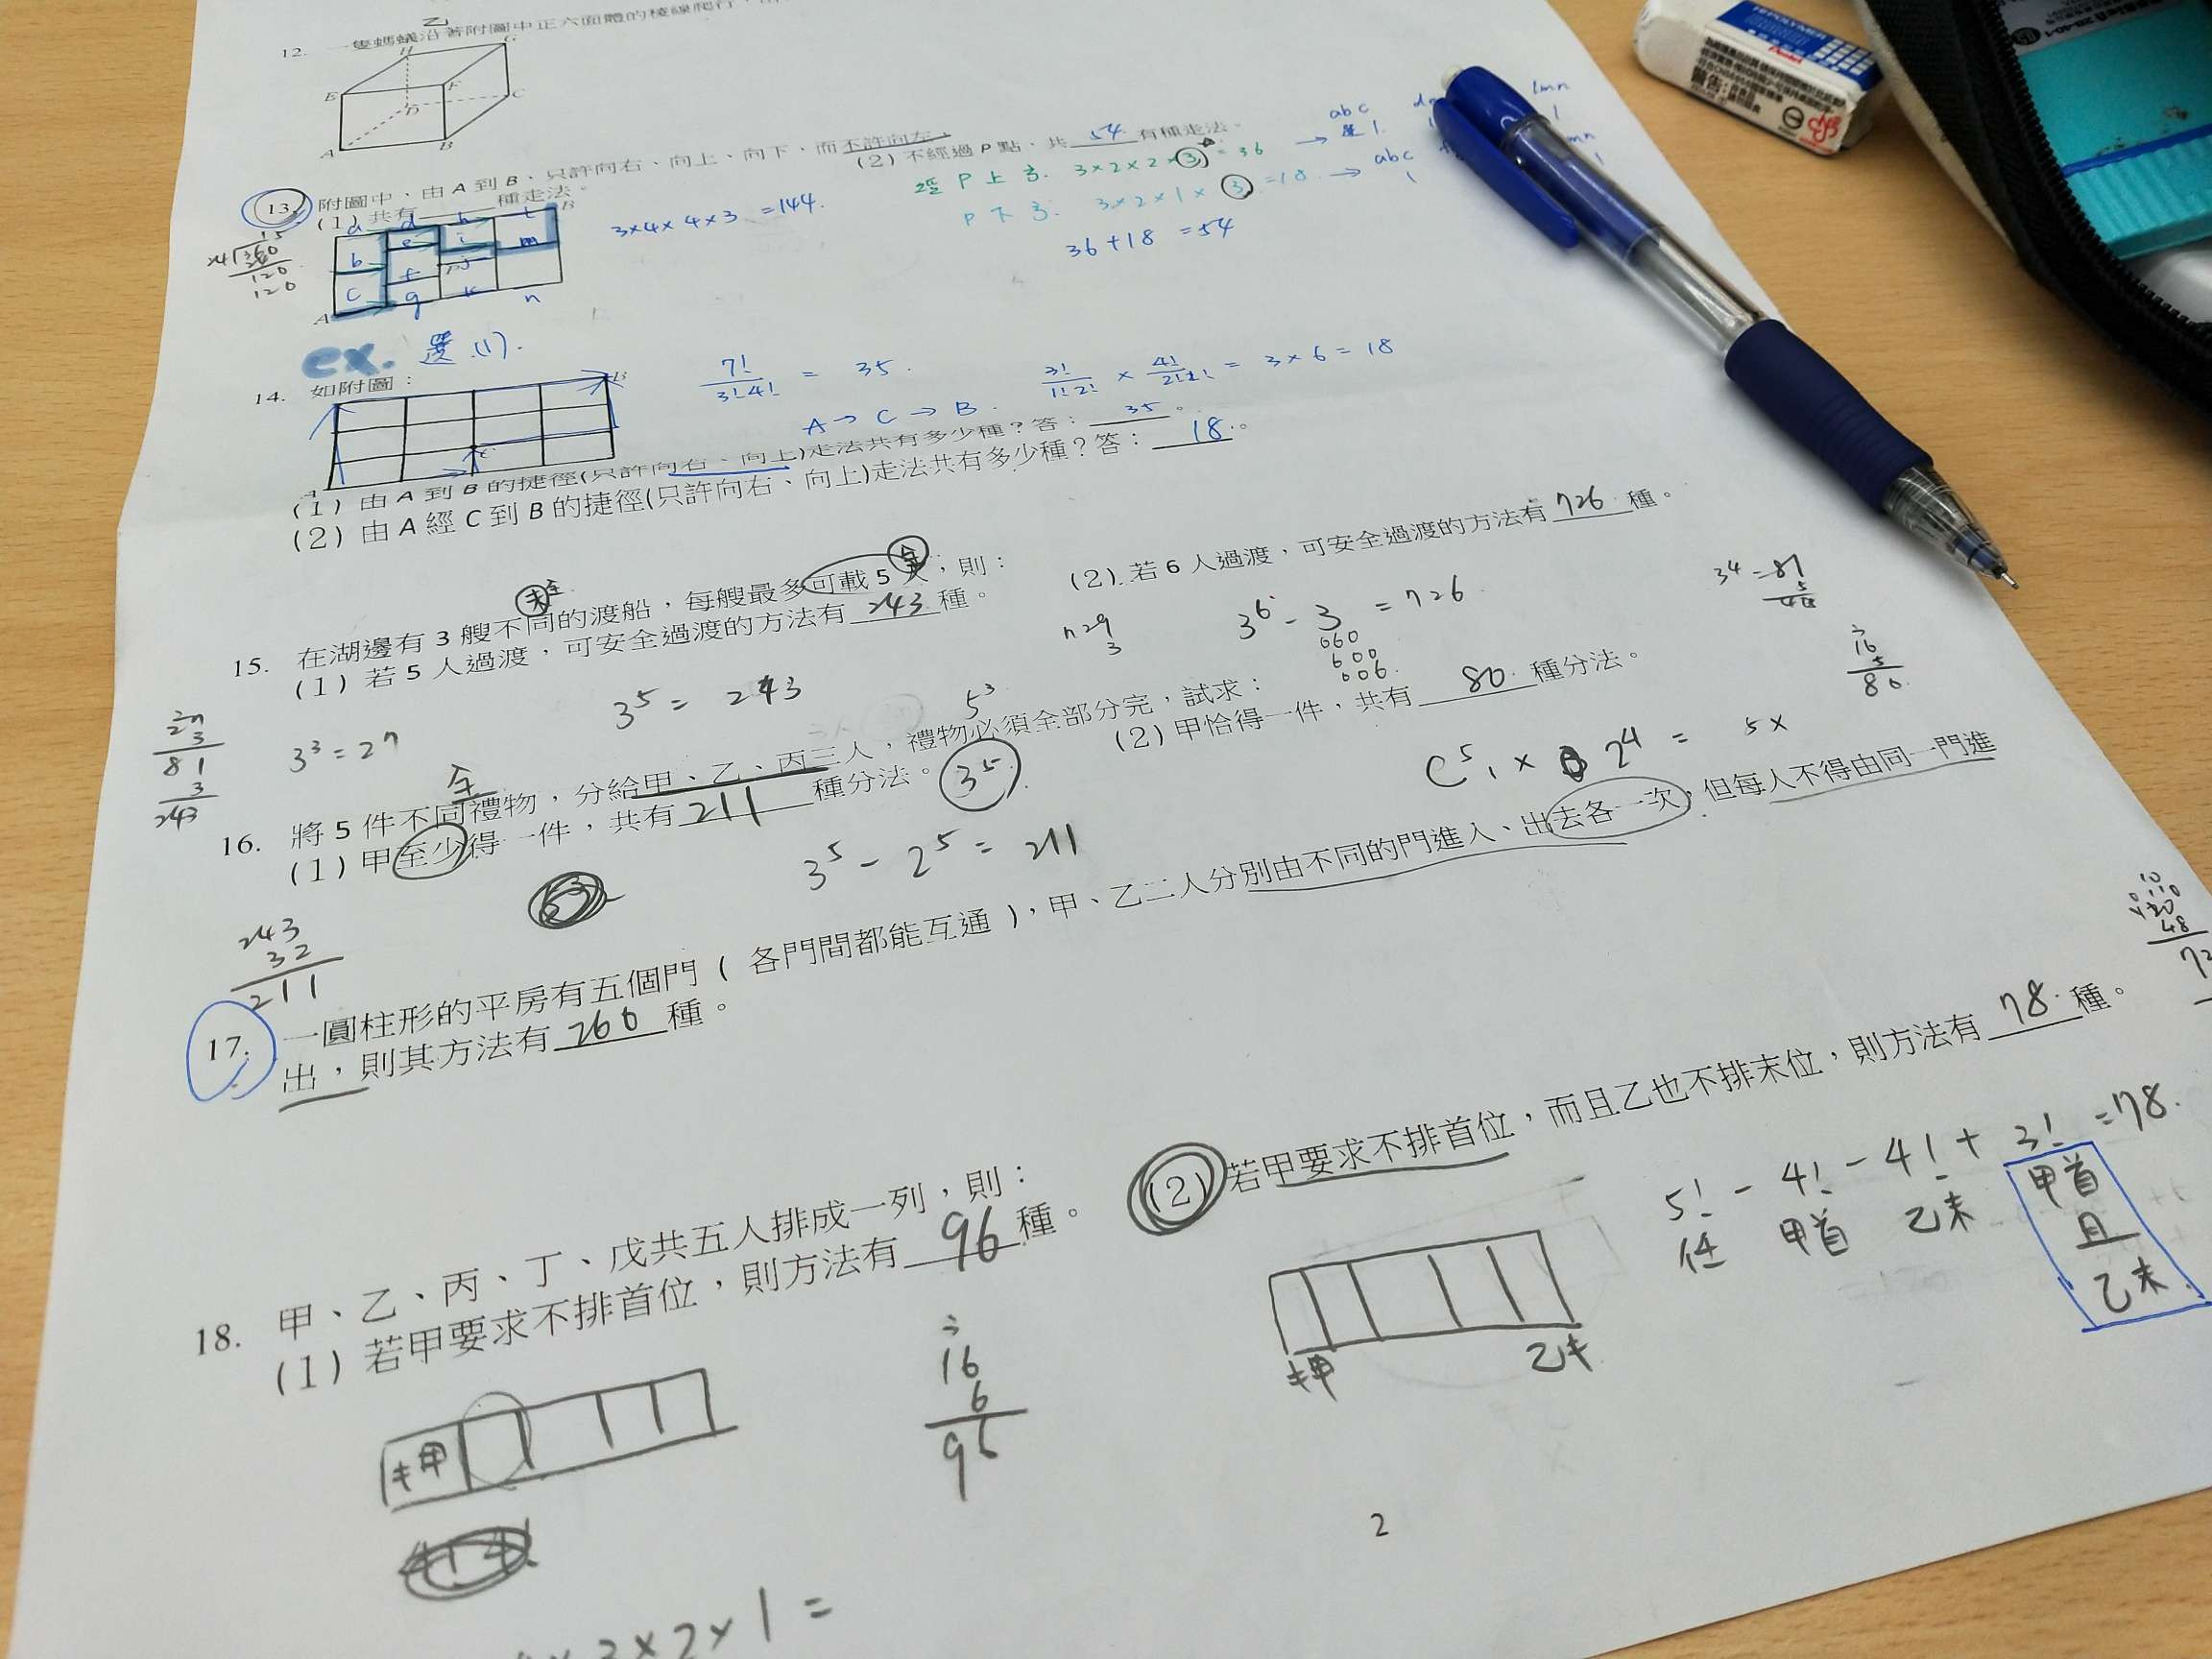 乙
12. 一隻螞蟻沿著附圖中正六面體的稜線爬行，
H G
E F
D C
A B
13. 附圖中、由 A 到 B、只許向右、向上、向下、而不許向左、
(1) 共有 種走法。
(2) 不經過 P 點、共 54 有種走法。
經 P 上方. 3×2×2×3 = 36 → abc
P 下方. 3×2×1×3 = 18 → abc
36+18 = 54
3×4×4×3 = 144.
a d h l B
b e i m
c f j
A g k n
ex. 選 (1).
14. 如附圖：
B
C
A
7!/3!4! = 35.
3!/1!2! × 4!/2!2! = 3×6 = 18
A → C → B.
(1) 由 A 到 B 的捷徑(只許向右、向上)走法共有多少種？答： 35 。
(2) 由 A 經 C 到 B 的捷徑(只許向右、向上)走法共有多少種？答： 18 。
15. 在湖邊有 3 艘不同的渡船，每艘最多可載 5 人；則：
(1) 若 5 人過渡，可安全過渡的方法有 243 種。
(2) 若 6 人過渡，可安全過渡的方法有 726 種。
3⁵ = 243
3³ = 27
729
3
3⁶ - 3 = 726
060
600
006
3⁴ = 81
27
3
81
3
243
16. 將 5 件不同禮物，分給甲、乙、丙三人，禮物必須全部分完，試求：
(1) 甲至少得一件，共有 211 種分法。
(2) 甲恰得一件，共有 80 種分法。
5³
3⁵
3⁵ - 2⁵ = 211
C⁵₁ × 2⁴ = 5×
16
5
80
243
32
211
17. 一圓柱形的平房有五個門( 各門間都能互通 )，甲、乙二人分別由不同的門進入、出去各一次，但每人不得由同一門進
出，則其方法有 260 種。
18. 甲、乙、丙、丁、戊共五人排成一列，則：
(1) 若甲要求不排首位，則方法有 96 種。
(2) 若甲要求不排首位，而且乙也不排末位，則方法有 78 種。
5! - 4! - 4! + 3! = 78.
任 甲首 乙末 甲首
且
乙末
16
6
96
×3×2×1 =
2